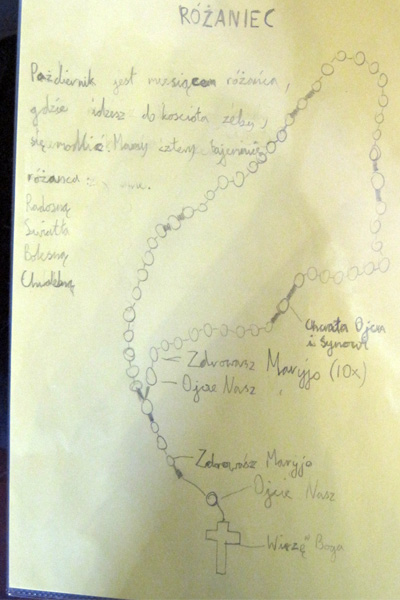 RÓŻANIEC
Październik jest miesiącem różańca,
gdzie idziesz do kościoła żeby,
się modlić. Mamy cztery tajemnice
różańca
Radosną
Światła
Bolesną
Chwalebną
Chwała Ojcu
i Synowi
Zdrowasz Maryjo (10x)
Ojcie Nasz
Zdrowasz Maryjo
Ojcie Nasz
Wierzę w Boga